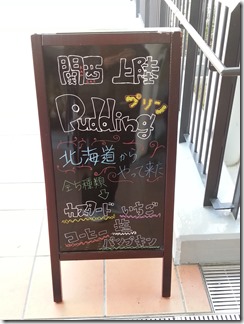 関西 上陸
Pudding
プリン
北海道から
やって来た
全5種類
カスタード いちご
コーヒー 塩
パンプキン